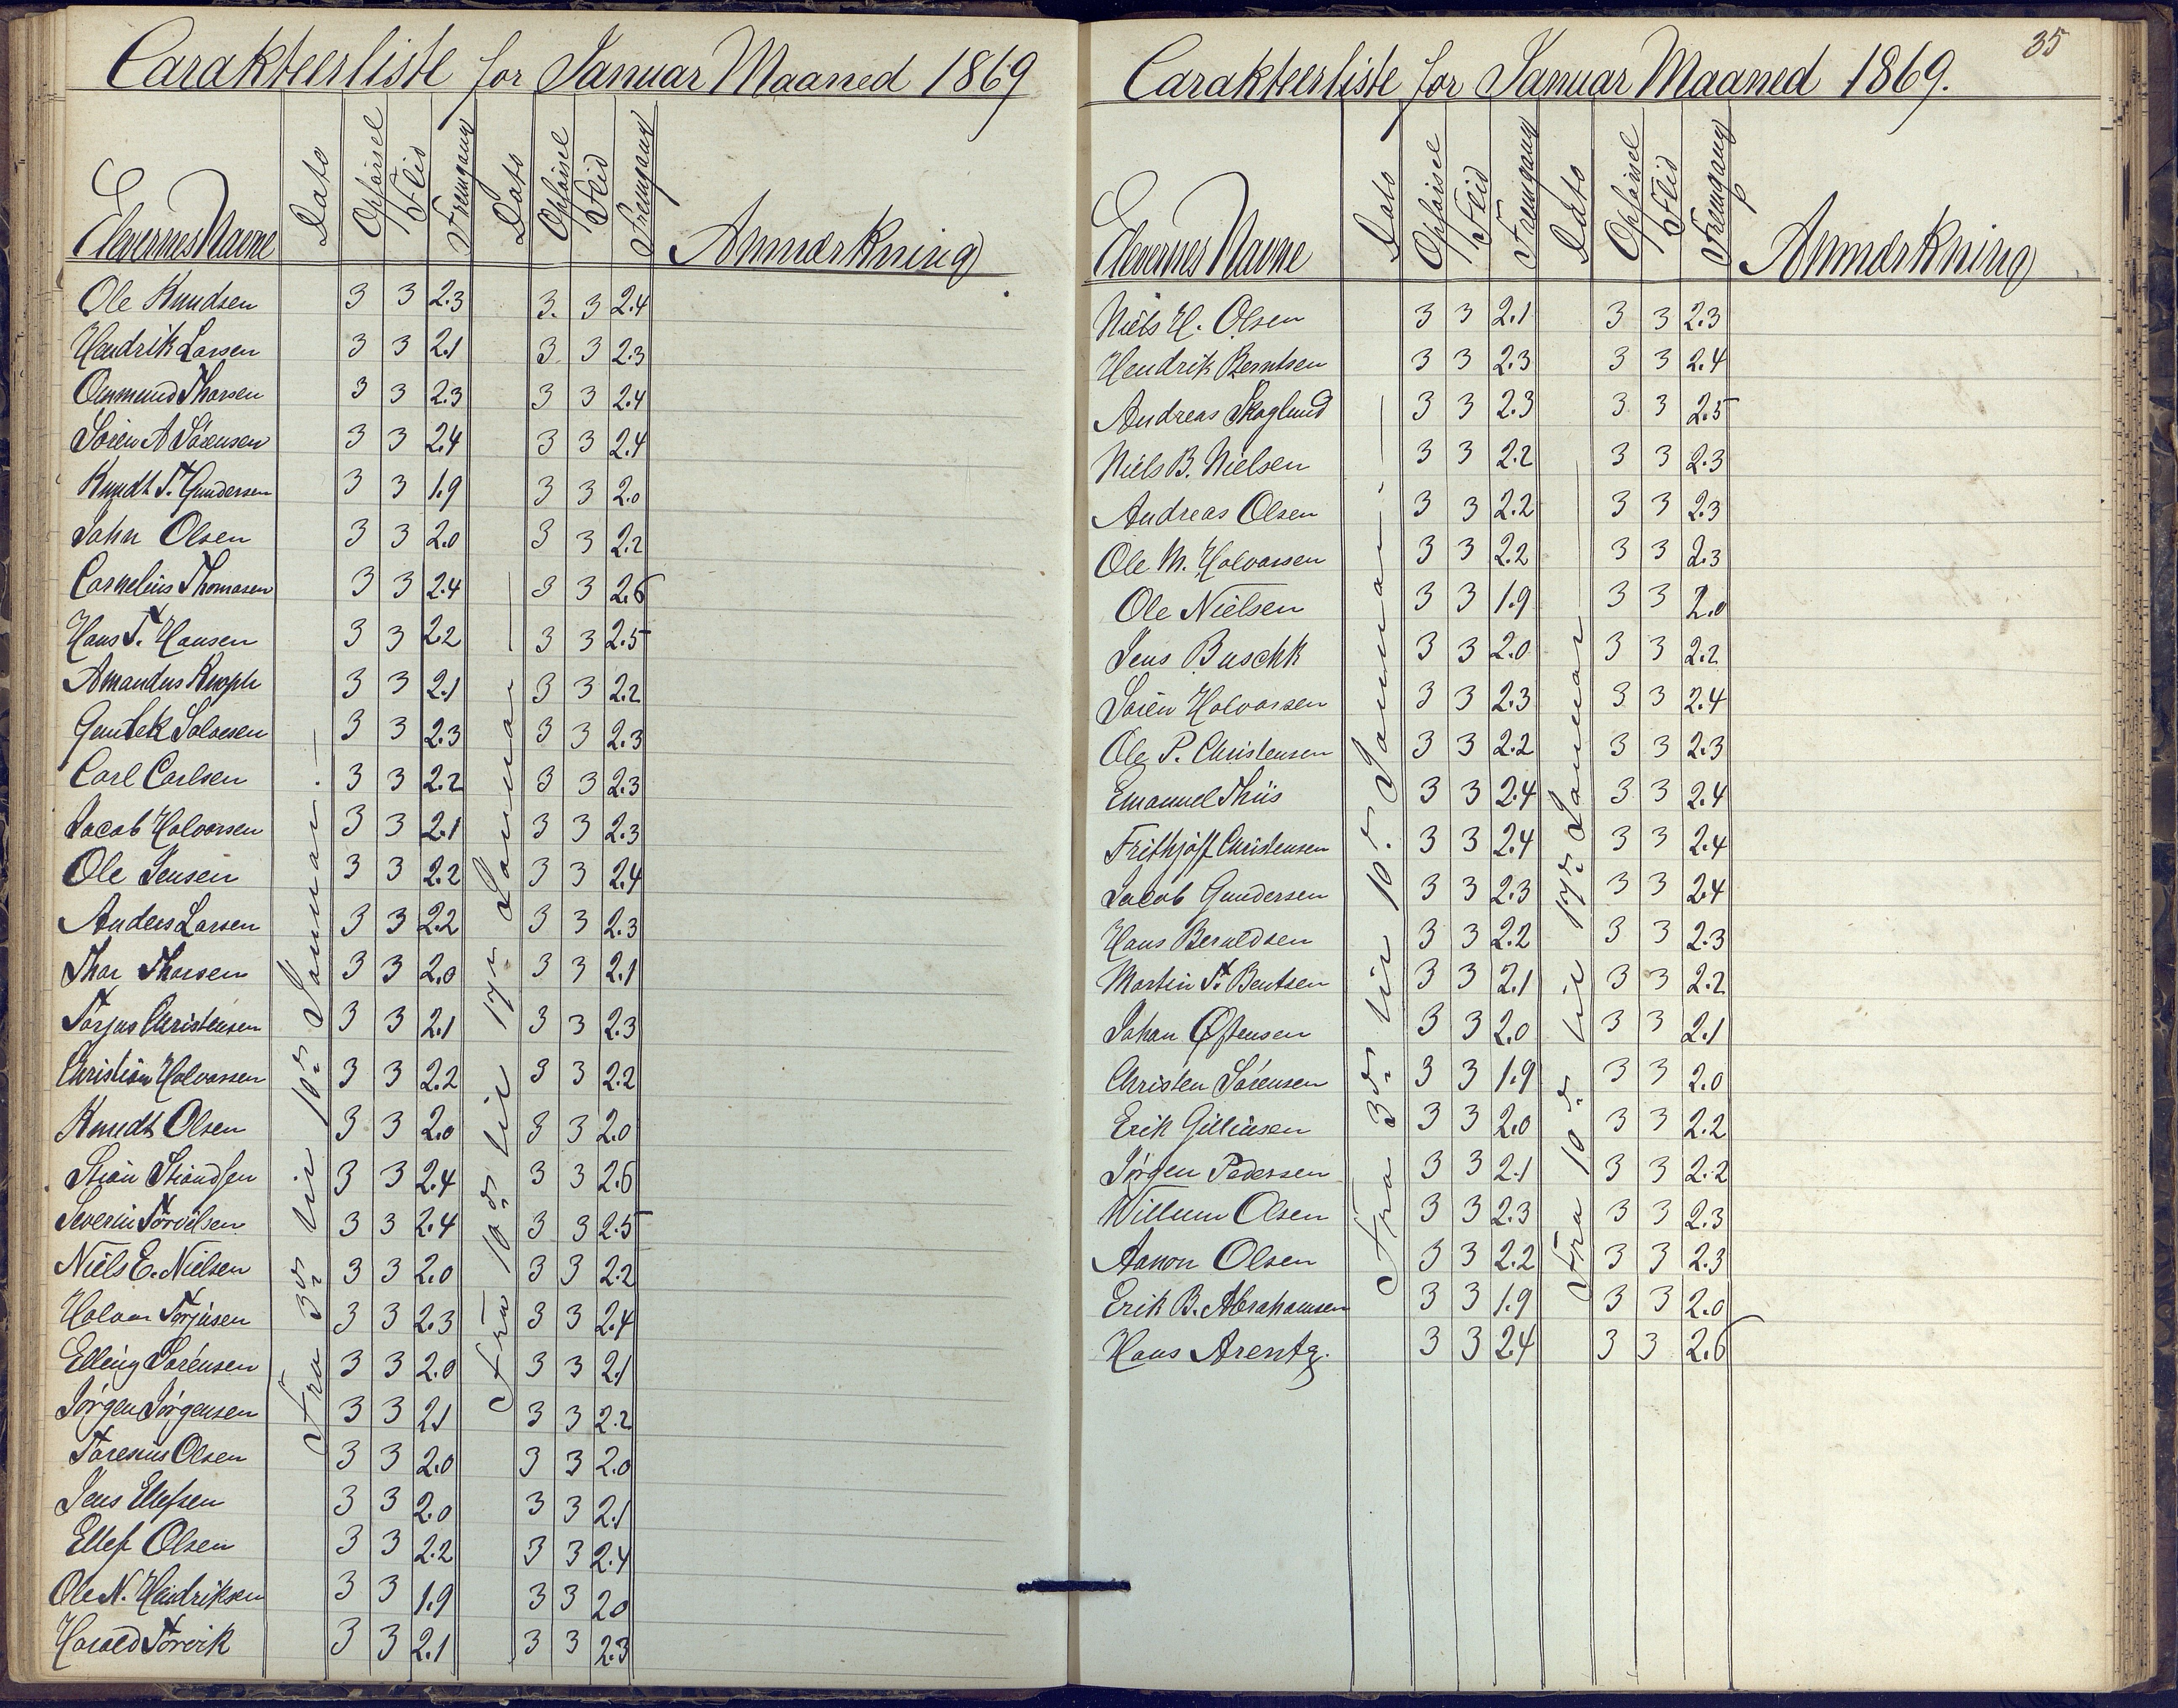 Carakteerliste for Januar Maaned 1869
Elevernes Navne Dato Opførsel Flid Fremgang Dato Opførsel Flid Fremgang Anmærkning
Fra 3de til 10de Januar.
Fra 10de til 17de Januar
Ole Knudsen 3 3 2.3 3. 3 2.4
Hendrik Larsen 3 3 2.1 3 3 2.3
Ommund Thorsen 3 3 2.3 3 3 2.4
Sören A Sörensen 3 3 2.4 3 3 2.4
Knudt T. Gundersen 3 3 1.9 3 3 2.0
John Olsen 3 3 2.0 3 3 2.2
Cornelius Thomasen 3 3 2.4 3 3 2.6
Hans T. Hansen 3 3 2.2 3 3 2.5
Amandus Knoph 3 3 2.1 3 3 2.2
Guntek Salvesen 3 3 2.3 3 3 2.3
Carl Carlsen 3 3 2.2 3 3 2.3
Jacob Halvorsen 3 3 2.1 3 3 2.3
Ole Jensen 3 3 2.2 3 3 2.4
Anders Larsen 3 3 2.2 3 3 2.3
Thor Thorsen 3 3 2.0 3 3 2.1
Torjus Christensen 3 3 2.1 3 3 2.3
Christian Halvorsen 3 3 2.2 3 3 2.2
Knudt Olsen 3 3 2.0 3 3 2.0
Stian Stiandsen 3 3 2.4 3 3 2.6
Severin Torvilsen 3 3 2.4 3 3 2.5
Niels E. Nielsen 3 3 2.0 3 3 2.2
Halvor Torjusen 3 3 2.3 3 3 2.4
Elling Sørensen 3 3 2.0 3 3 2.1
Jörgen Jörgensen 3 3 2.1 3 3 2.2
Toresius Olsen 3 3 2.0 3 3 2.0
Jens Ellefsen 3 3 2.0 3 3 2.1
Ellef Olsen 3 3 2.2 3 3 2.4
Ole N. Hendriksen 3 3 1.9 3 3 2.0
Harald Torvik 3 3 2.1 3 3 2.3
35
Carakteerliste for Januar Maaned 1869.
Elevernes Navne Dato Opførsel Flid Fremgang Dato Opførsel Flid Fremgang Anmærkning
Fra 3de til 10de Januar.
Fra 10de til 17de Januar
Niels H. Olsen 3 3 2.1 3 3 2.3
Hendrik Berntsen 3 3 2.3 3 3 2.4
Andreas Skoglund 3 3 2.3 3 3 2.5
Niels B. Nielsen 3 3 2.2 3 3 2.3
Andreas Olsen 3 3 2.2 3 3 2.3
Ole M. Halvorsen 3 3 2.2 3 3 2.3
Ole Nielsen 3 3 1.9 3 3 2.0
Jens Buschk 3 3 2.0 3 3 2.2
Sören Halvorsen 3 3 2.3 3 3 2.4
Ole P. Christensen 3 3 2.2 3 3 2.3
Emanuel Thiis 3 3 2.4 3 3 2.4
Frithjoff Christensen 3 3 2.4 3 3 2.4
Jacob Gundersen 3 3 2.3 3 3 2.4
Hans Beruldsen 3 3 2.2 3 3 2.3
Martin T. Bentsen 3 3 2.1 3 3 2.2
Johan Østensen 3 3 2.0 3 3 2.1
Christen Sörensen 3 3 1.9 3 3 2.0
Erik Gjeruldsen 3 3 2.0 3 3 2.2
Jörgen Pedersen 3 3 2.1 3 3 2.2
Willum Olsen 3 3 2.3 3 3 2.3
Aanon Olsen 3 3 2.2 3 3 2.3
Erik B. Abrahamsen 3 3 1.9 3 3 2.0
Hans Arentz. 3 3 2.4 3 3 2.6